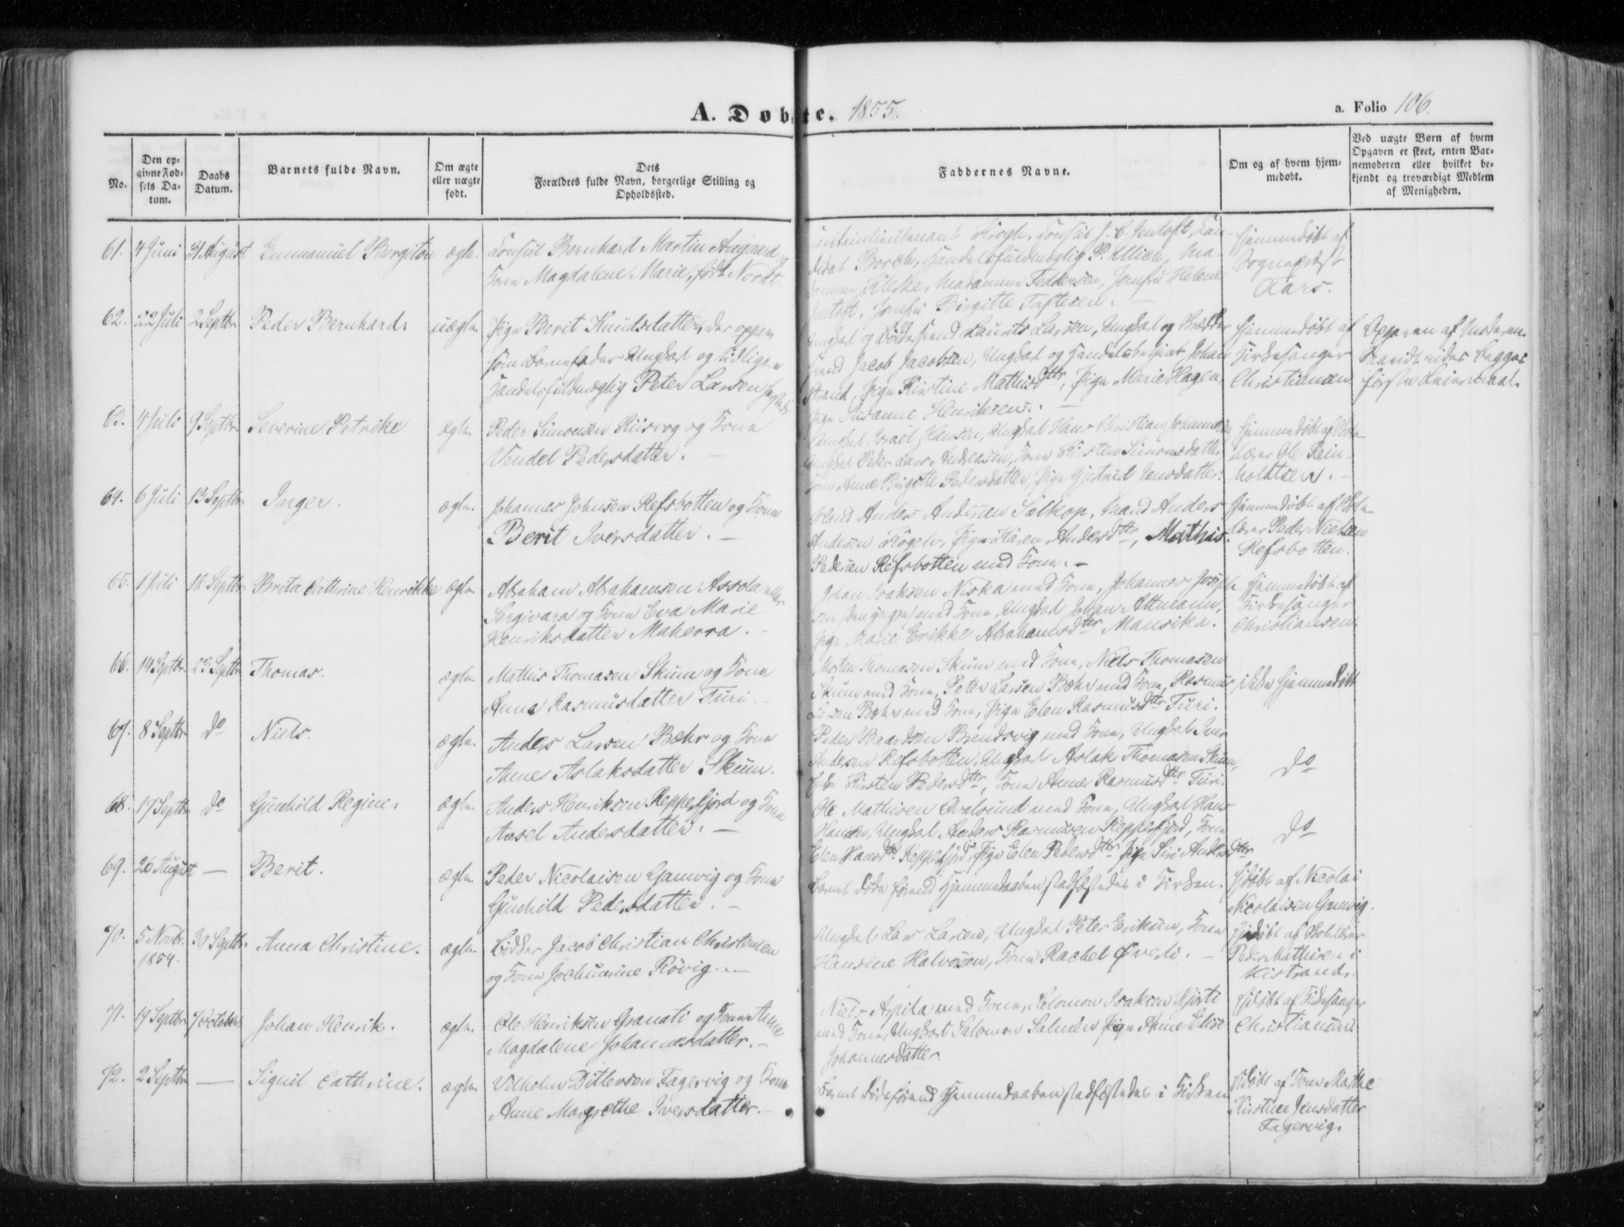 A. Døbte. 1855.
a. Folio 106
No.
Den op-
givne Fød-
sels Da-
tum.
Daabs
Datum.
Barnets fulde Navn.
Om ægte
eller uægte
født.
Dets
Forældres fulde Navn, borgerlige Stilling og
Opholdssted.
Faddernes Navne.
Om og af hvem hjem-
medøbt.
Ved uægte Børn af hvem
Opgaven er skeet, enten Bar-
nemoderen eller hvilket be-
kjendt og troværdigt Medlem
af Menigheden.
61. 4 Juni 31 August Emmanuel Bergiton ægte. Consul Bernhard Martin Aagaard og
Kone Magdalene Marie, født Nordt.
Hjemmedøbt af
Sogneprest
Aars.
Candidat Borch, Handelsfuldmægtig P. Ulich, Ma-
Madamme Feddersen, Jomfru Helene
Jentoft, Jomfru Birgitte
62. 22 Juli 2 Septbr Peder Bernhard. uægte Pige Berit Knudsdatter, der opgav
som Barnefader Ungkarl og tidligere
Handelsfuldmægtig Peter Larsen
Laurits Larsen, Ungkarl og
Jacob Jacobsen, Ungkarl og Handelsbetjent Johan
Strand, Pige Kirstine Mathisdttr, Pige Marie Hagen,
Pige Susanne Henriksen.
Hjemmedøbt af
Kirkesanger
Christiansen
Opgaven af Moderen.
Begges
første Leiermaal.
63. 4 Juli 9 Septbr Severine Petrike ægte Peder Simonsen Kiisvog og Kone
Vendel Pedersdatter.
Ungkarl Israel Hansen, Ungkarl Hans Christian Johannesen
Ungkarl Peder Lars Andreassen, Kone Kirsten Simonsdatter
Kone Anne Birgitte Pedersdatter, Pige Gjertrud Jensdatter.
Hjemmedøbt af
Ole Rein-
holdtsen.
64. 6 Juli 13 Septbr Inger. ægte. Johannes Johnsen Refsbotten og Kone
Berit Iversdatter.
Mand Anders Andersen Saltkop, Mand Anders
Andersen Pige Karen Andersdttr, Mathis
Pedersen Refsbotten med Kone.
Hjemmedøbt af
Peder Nielsen
Refsbotten.
65. 1 Juli 16 Septbr Brita Cathrine Henrikke ægte Abraham Abrahamsen Assola eller
Sergivara og Kone Eva Marie
Henriksdatter Maherra.
Johan Isaksen Niska med Kone, Johannes
med Kone, Ungkarl Johan Attmann,
Pige Marie Erikke Abrahamsdttr Mansika.
Hjemmedøbt af
Kirkesanger
Christiansen
66. 14 Septbr 23 Septbr Thomas. ægte Mathis Thomasen Skum og Kone
Anna Rasmusdatter Turi.
Morten Thomasen Skum med Kone, Niels Thomasen
Skum med Kone, Peter Larsen Bæhr med Kone, Rasmus
Larsen Bæhr med Kone, Pige Elen Rasmusdttr Turi.
ikke Hjemmedøbt
67. 8 Septbr do Niels. ægte Anders Larsen Bæhr og Kone
Anne Aslaksdatter Skum.
Peder Baardsen Brendsvig med Kone, Ungkarl
Andersen Refsbotten, Ungkarl Aslak Thomasen Skum,
Kirsten Pedersdttr, Kone Anne Rasmusdttr Turi.
do
68. 17 Septbr do Gunhild Regine. ægte Anders Henriksen Reppefjord og Kone
Aasel Andersdatter.
Ole Mathisen Qvalsund med Kone, Ungkarl Hans
Hansen, Ungkarl Anders Rasmusen Reppefjord, Kone
Elen Hansdttr Reppefjord, Pige Elen Pedersdttr Pige Siri Andersdttr
do
69. 26 August — Berit. ægte Peder Nicolaisen Gamvig og Kone
Gunhild Pedersdatter.
Barnet døde førend Hjemmedaaben stadfæstedes i Kirken.
Hjdøbt af Nicolai
Nicolaisen Gamvig.
70. 5 Novb.
1854. 30 Septbr Anna Christine. ægte Bødker Jacob Christian Christensen
og Kone Jochumine Røvig.
Ungkarl Lars Larsen, Ungkarl Peter Eriksen, Kone
Hansine Halvorsen, Kone Rachel Øverli.
Hjdøbt af
Peder Mathisen i
Kistrand.
71. 19 Septbr 7 October Johan Henrik. ægte. Ole Henriksen Granati og Kone Anne
Magdalene Johannesdatter.
Niels Aspila med Kone, Salomon Isaksen
med Kone, Ungkarl Salomon Salmén Pige Anne Elise
Johannesdatter
Hjdøbt af Kirkesanger
Christiansen
72. 2 Septbr — Signil Cathrine. ægte Vilhelm Ditlevsen Fagervig og Kone
Anne Margrethe Iversdatter.
Barnet døde førend Hjemmedaaben stadfæstedes i Kirken
Hjdøbt af Kone Marthe
Kirstine Jensdatter
Fagervig.